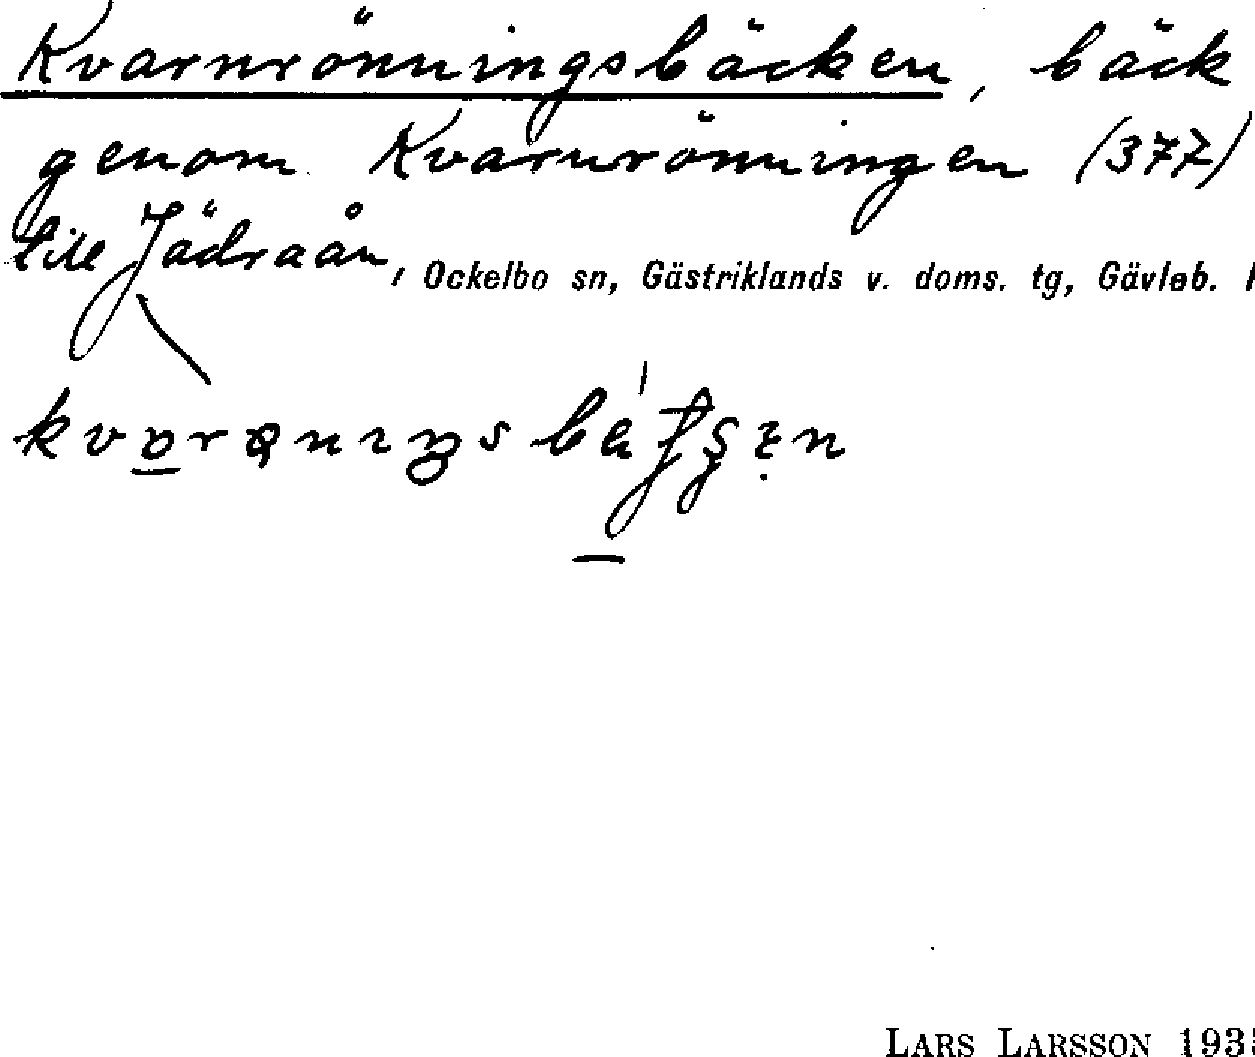 Kvarnrönningsbäcken, bäck
genom Kvarnrönningen (377)
till Jädraån, Ockelbo sn, Gästriklands v. doms. tg, Gävleb.
LARS LARSSON